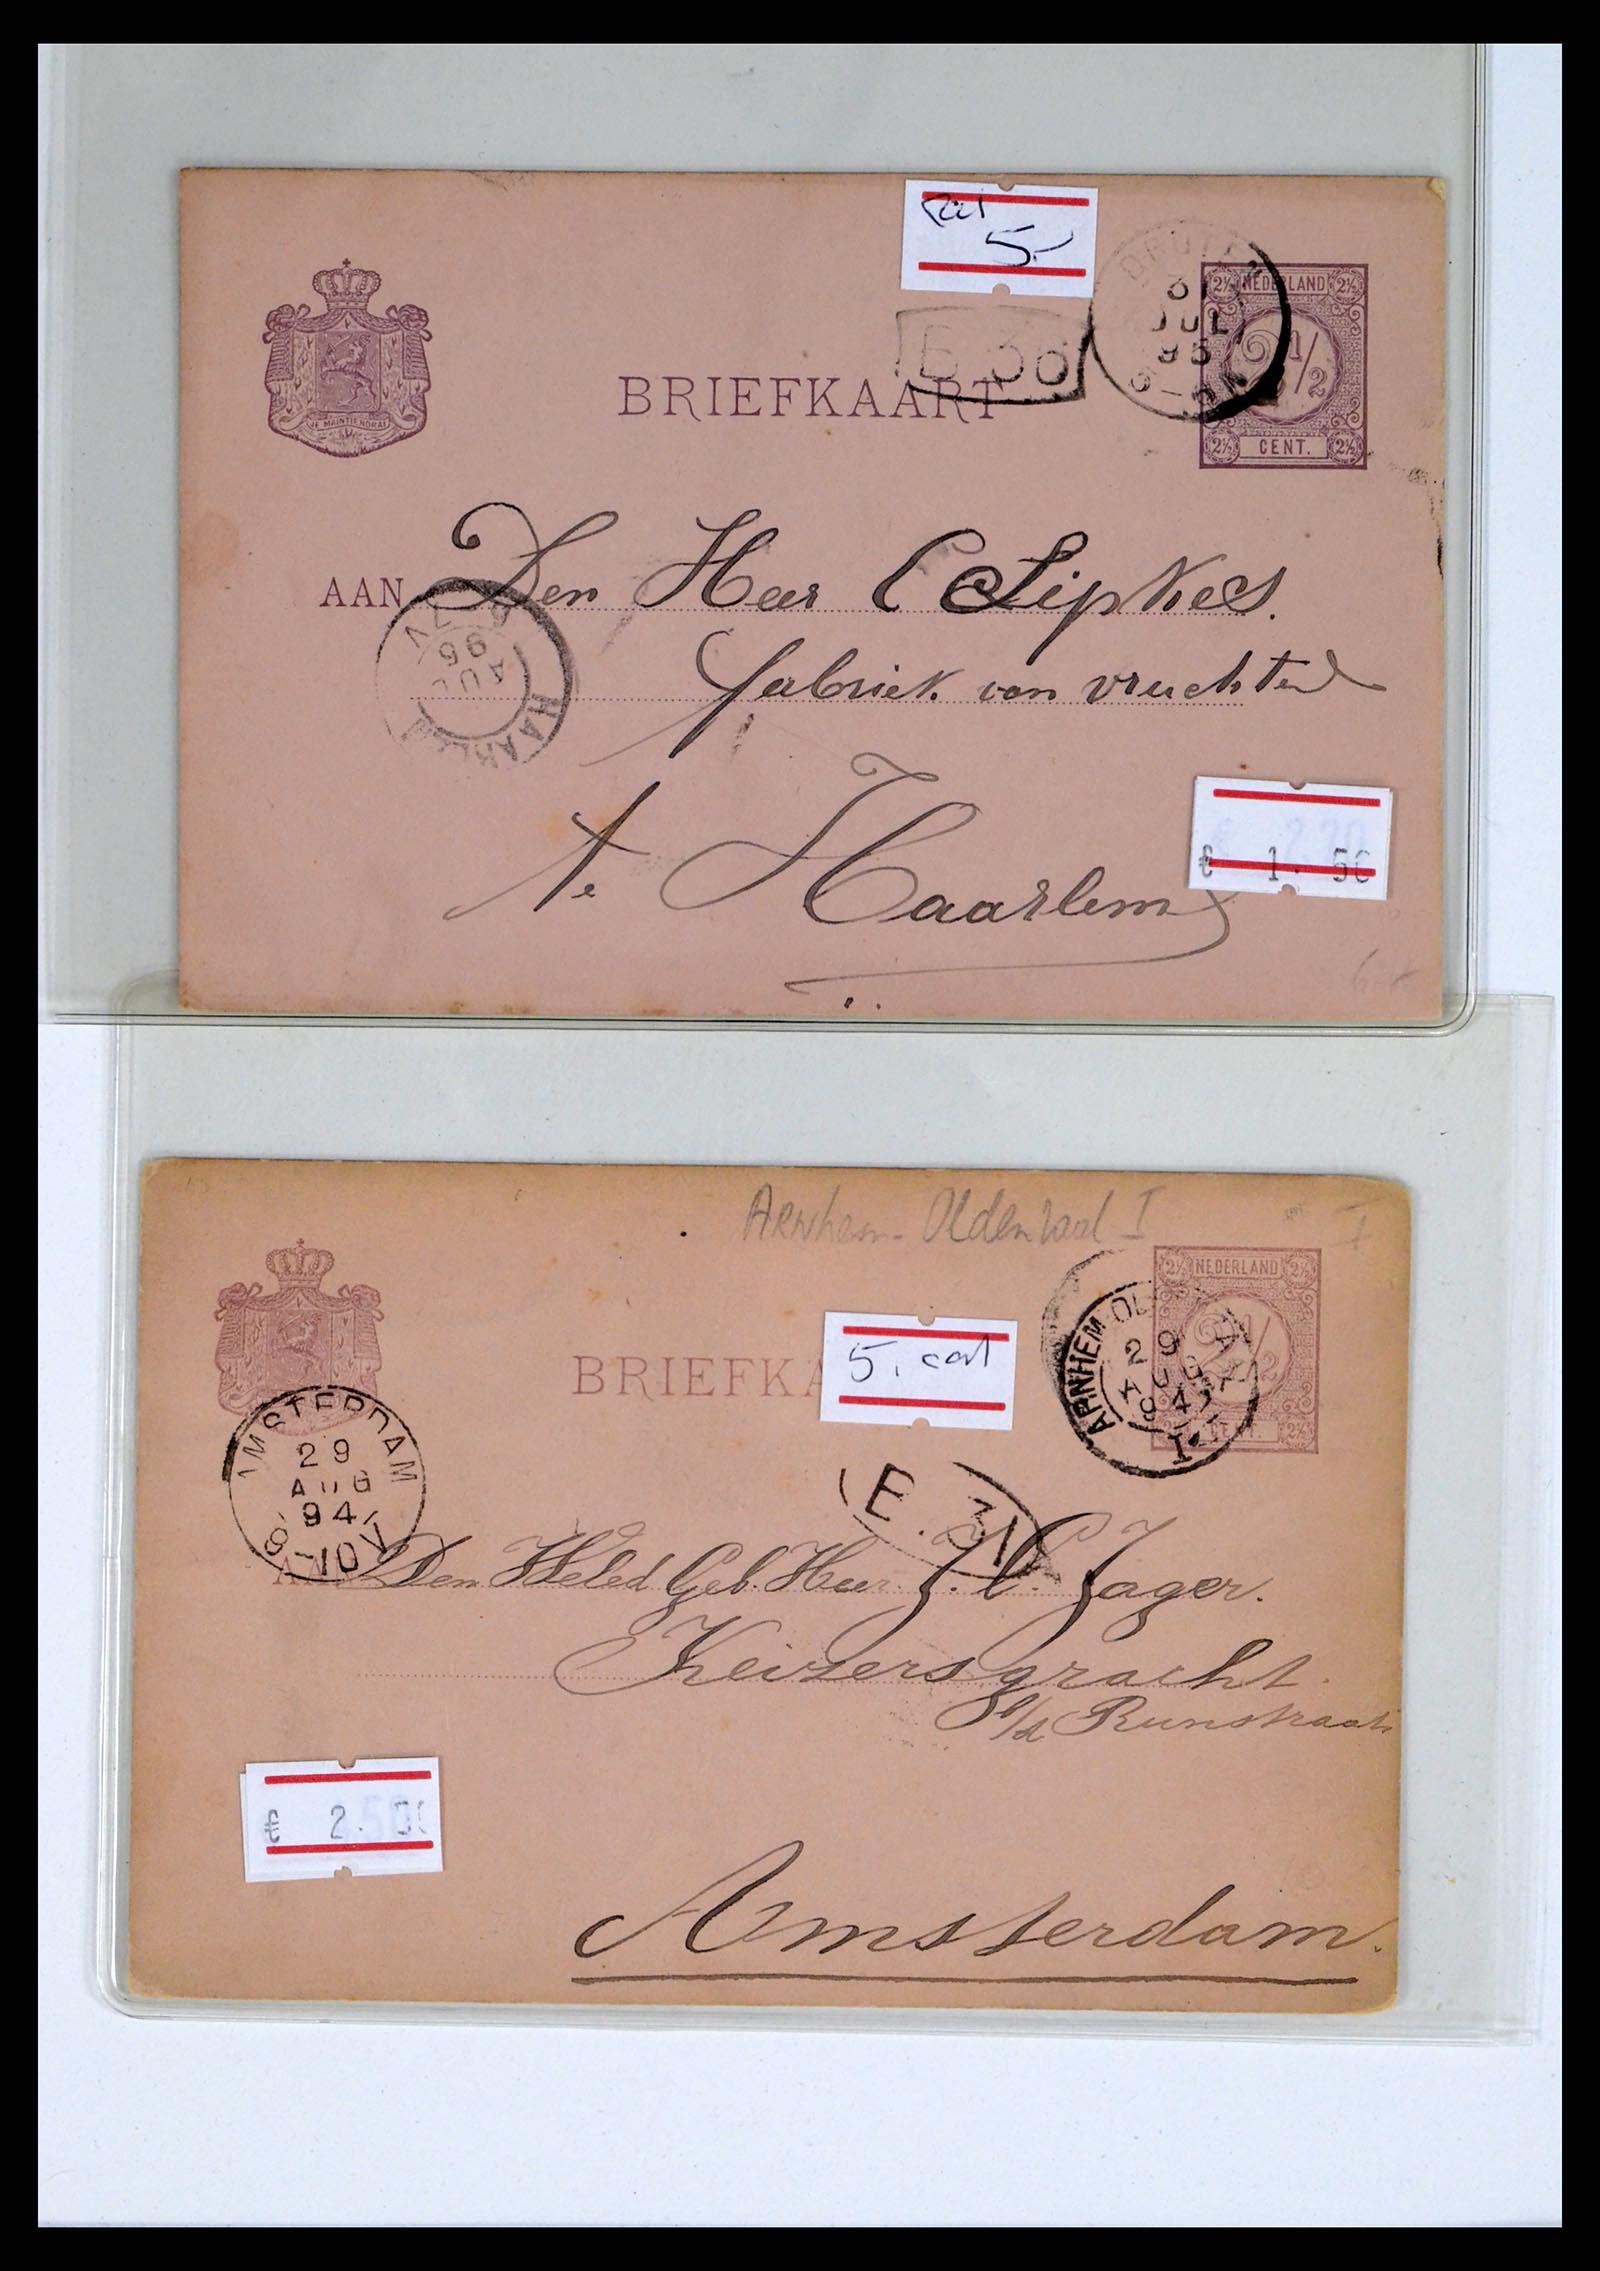 5.-
2½ NEDERLAND 2½
2 1/2
2½ CENT. 2½
JE MAINTIENDRAI
31
JUL
95
B 36
BRIEFKAART
AAN Den Heer C Lipkes.
fabriek van vruchten
te Haarlem
HAARLEM
AUG
95
€ 1.50
Arnhem-Oldenzaal I
I
2½ NEDERLAND 2½
2 1/2
CENT. 2½
ARNHEM-OLDENZAAL
29
AUG
94
I
5. cat
BRIEFKA
AMSTERDAM
29
AUG
94
8-10V
E. 31
AAN Den WelEd Geb. Heer J. C. Jager.
Keizersgracht
b/d Runstraat
€ 2.50
Amsterdam.